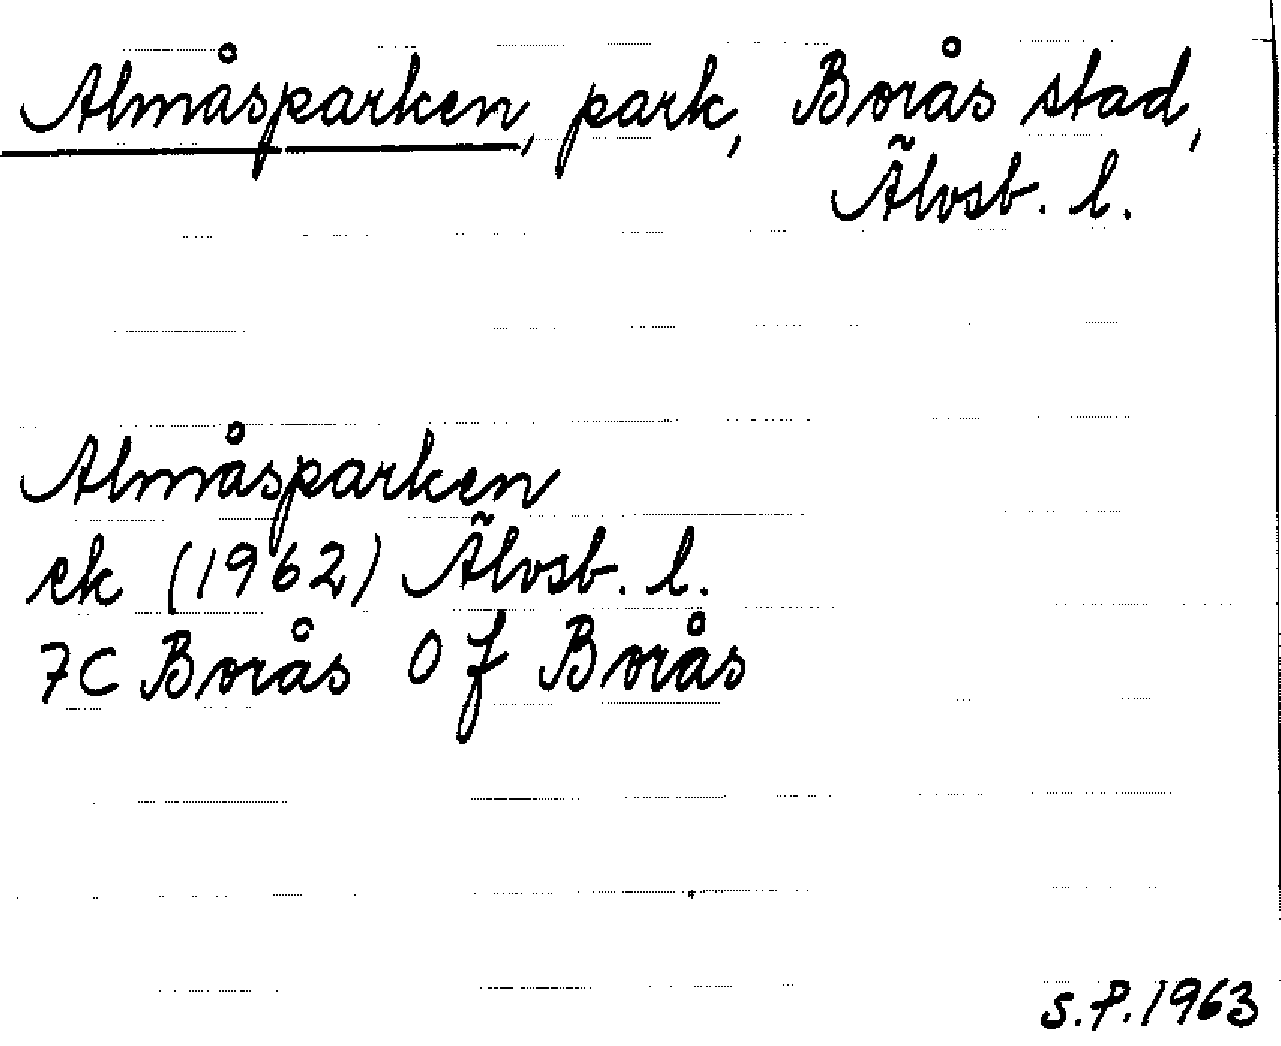 Almåsparken, park, Borås stad,
Älvsb. l.
Almåsparken
ek (1962) Älvsb. l.
7C Borås 0 f Borås
S.P. 1963